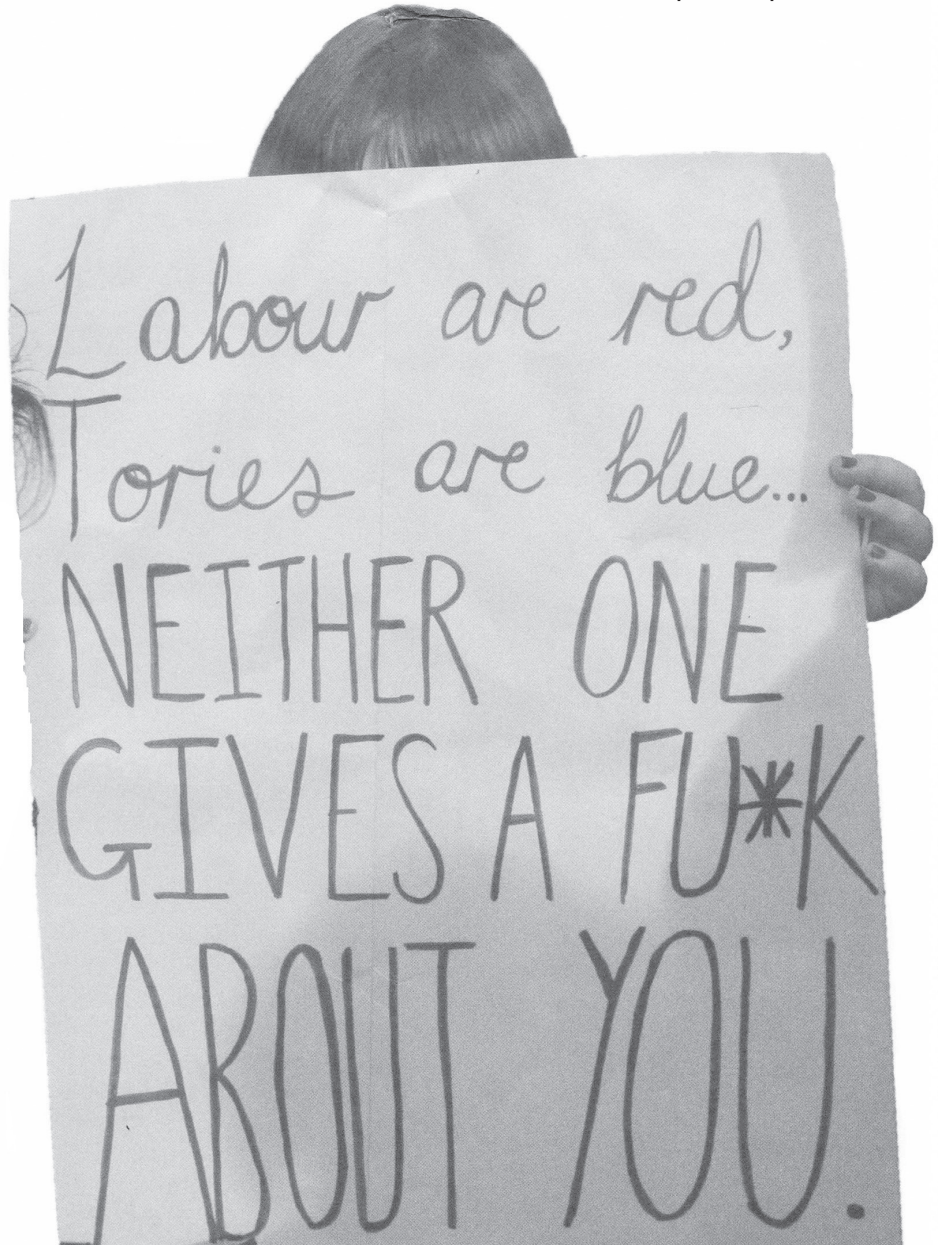 Labour are red,
Tories are blue...
NEITHER ONE
GIVES A FU*K
ABOUT YOU.